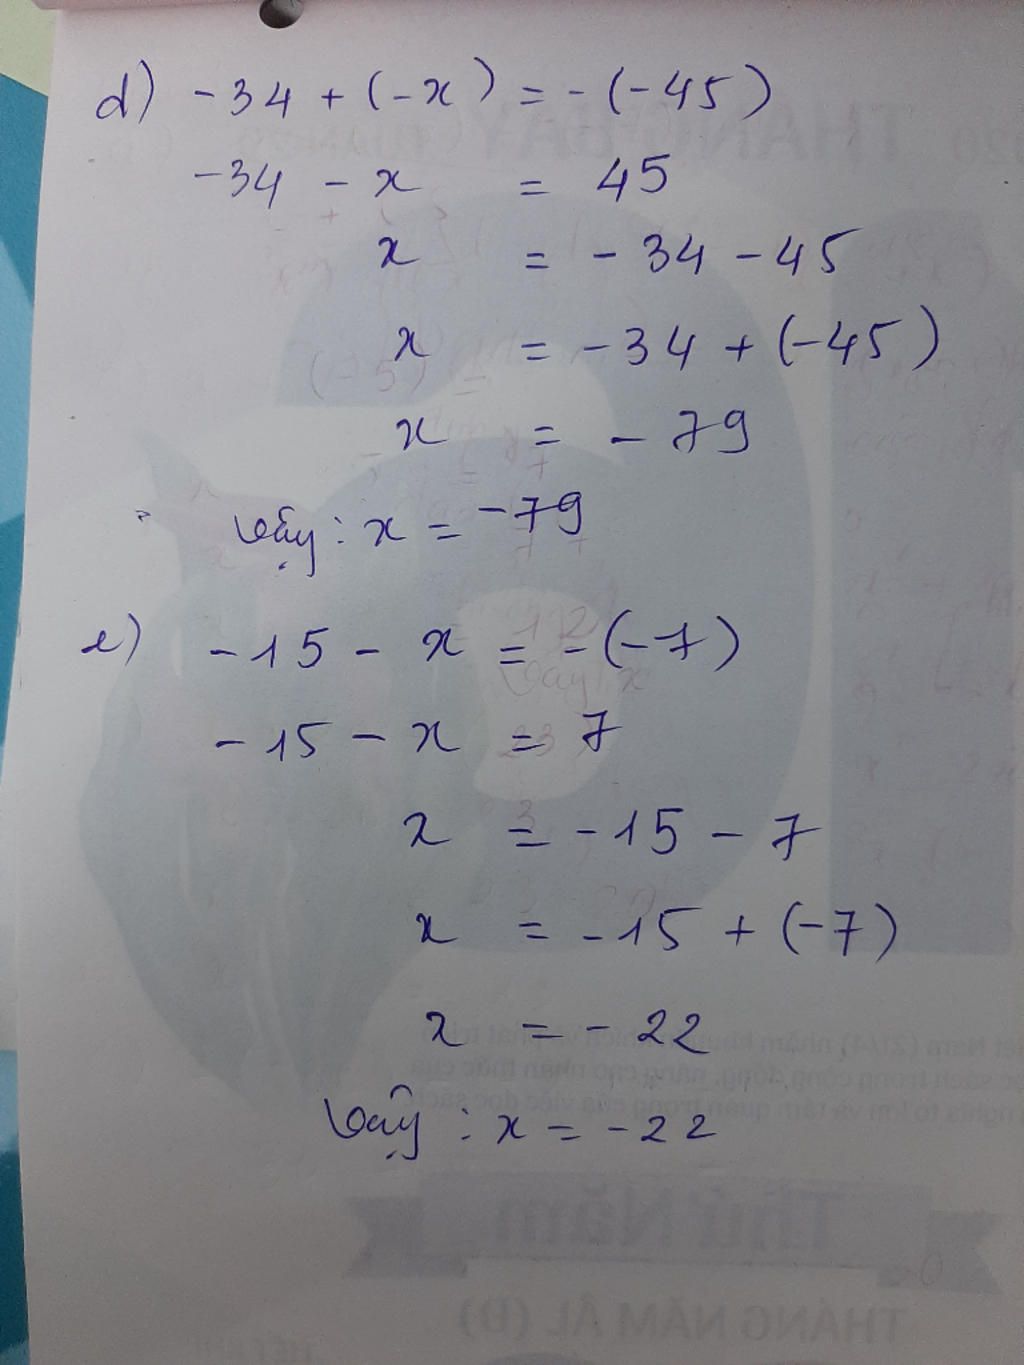 d) -34 + (-x) = -(-45)
-34 - x = 45
x = -34 - 45
x = -34 + (-45)
x = -79
Vậy: x = -79
e) -15 - x = -(-7)
-15 - x = 7
x = -15 - 7
x = -15 + (-7)
x = -22
Vậy: x = -22